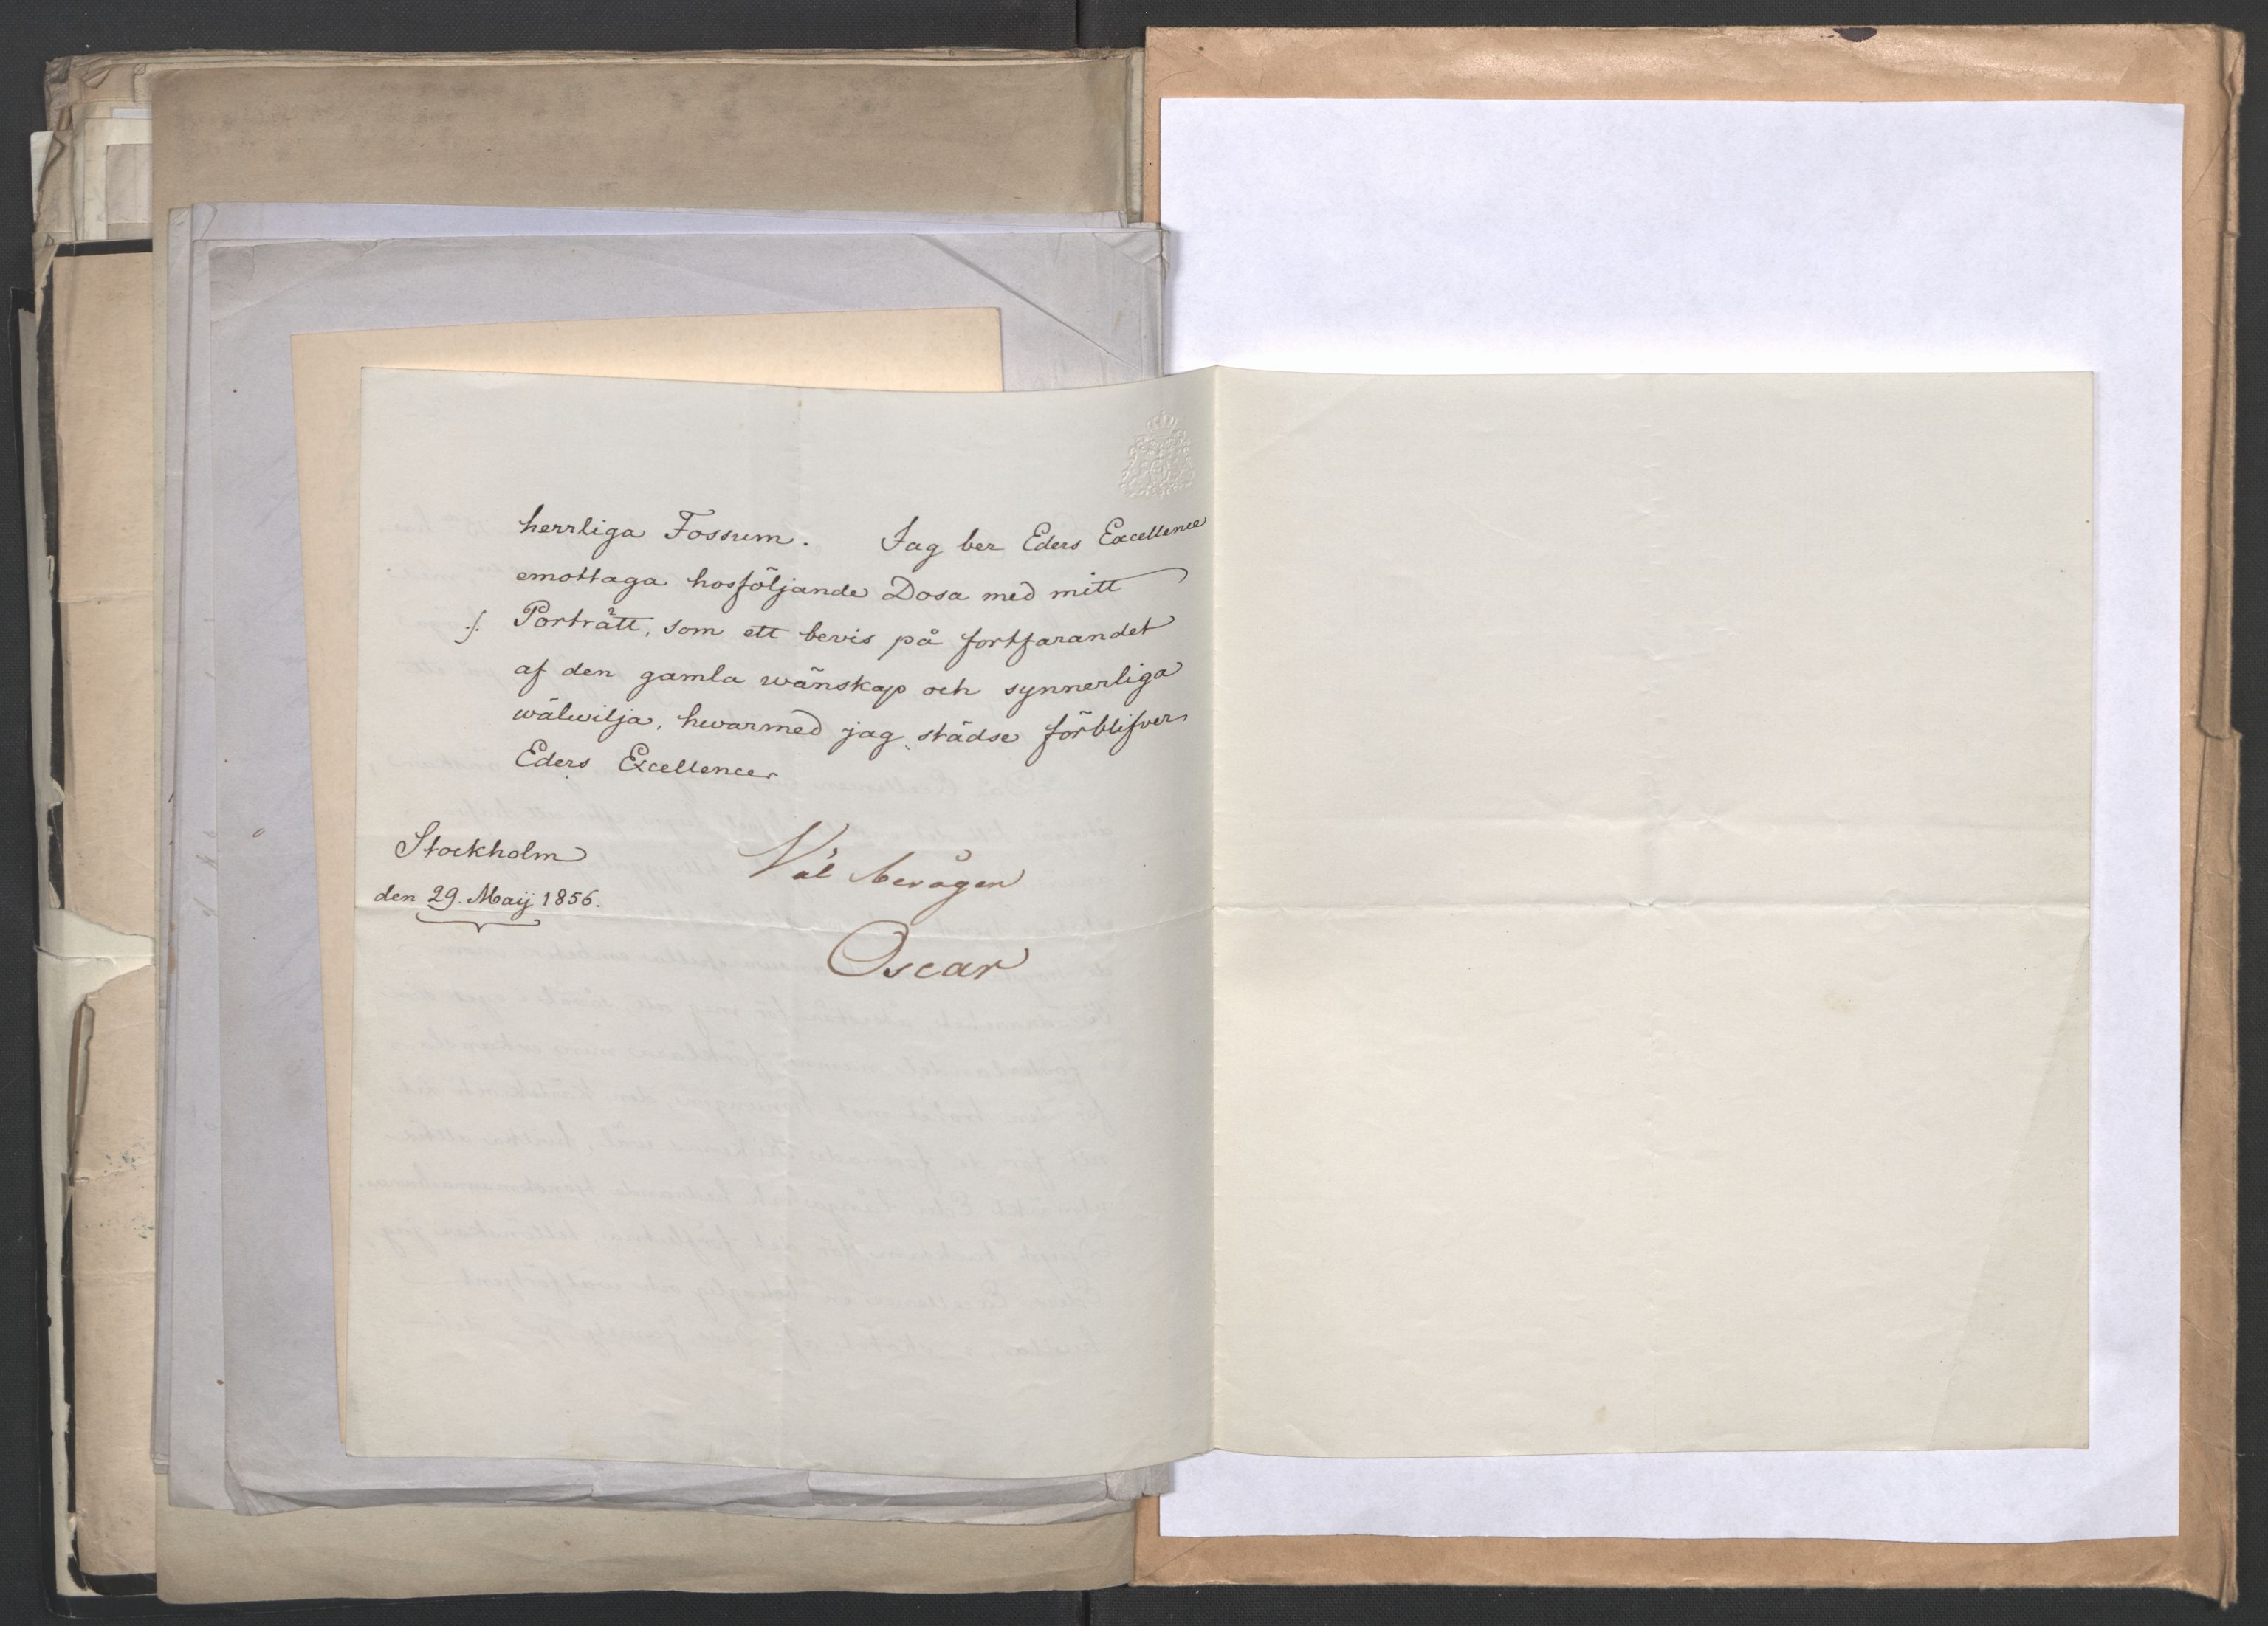 herrliga Fossum. Jag ber Eders Excellence
emottaga hosföljande Dosa med mitt
./. Porträtt, som ett bevis på fortfarandet
af den gamla wänskap och synnerliga
wälwilja, hwarmed jag städse förblifver
Eders Excellences
Stockholm
den 29. Maij 1856.
Väl bevågen
Oscar